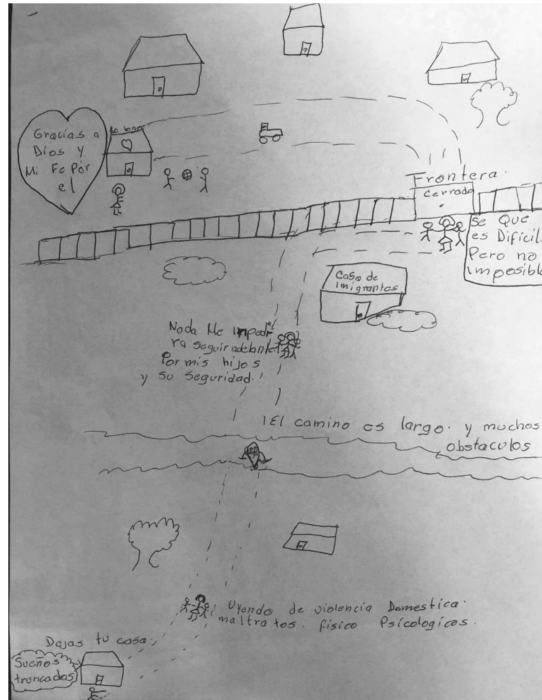 Gracias a
Dios y
Mi Fe Por
el
Lo logré
Frontera.
cerrada
Se Que
es Dificil.
Pero no
imposible
Casa de
imigrantes
Nada Me impedi
ra seguir adelante
Por mis hijos
y su seguridad.
¡El camino es largo. y muchos
obstaculos
Uyendo de violencia Domestica.
maltratos. fisico Psicologicos.
Dejas tu casa,
Sueños
truncados